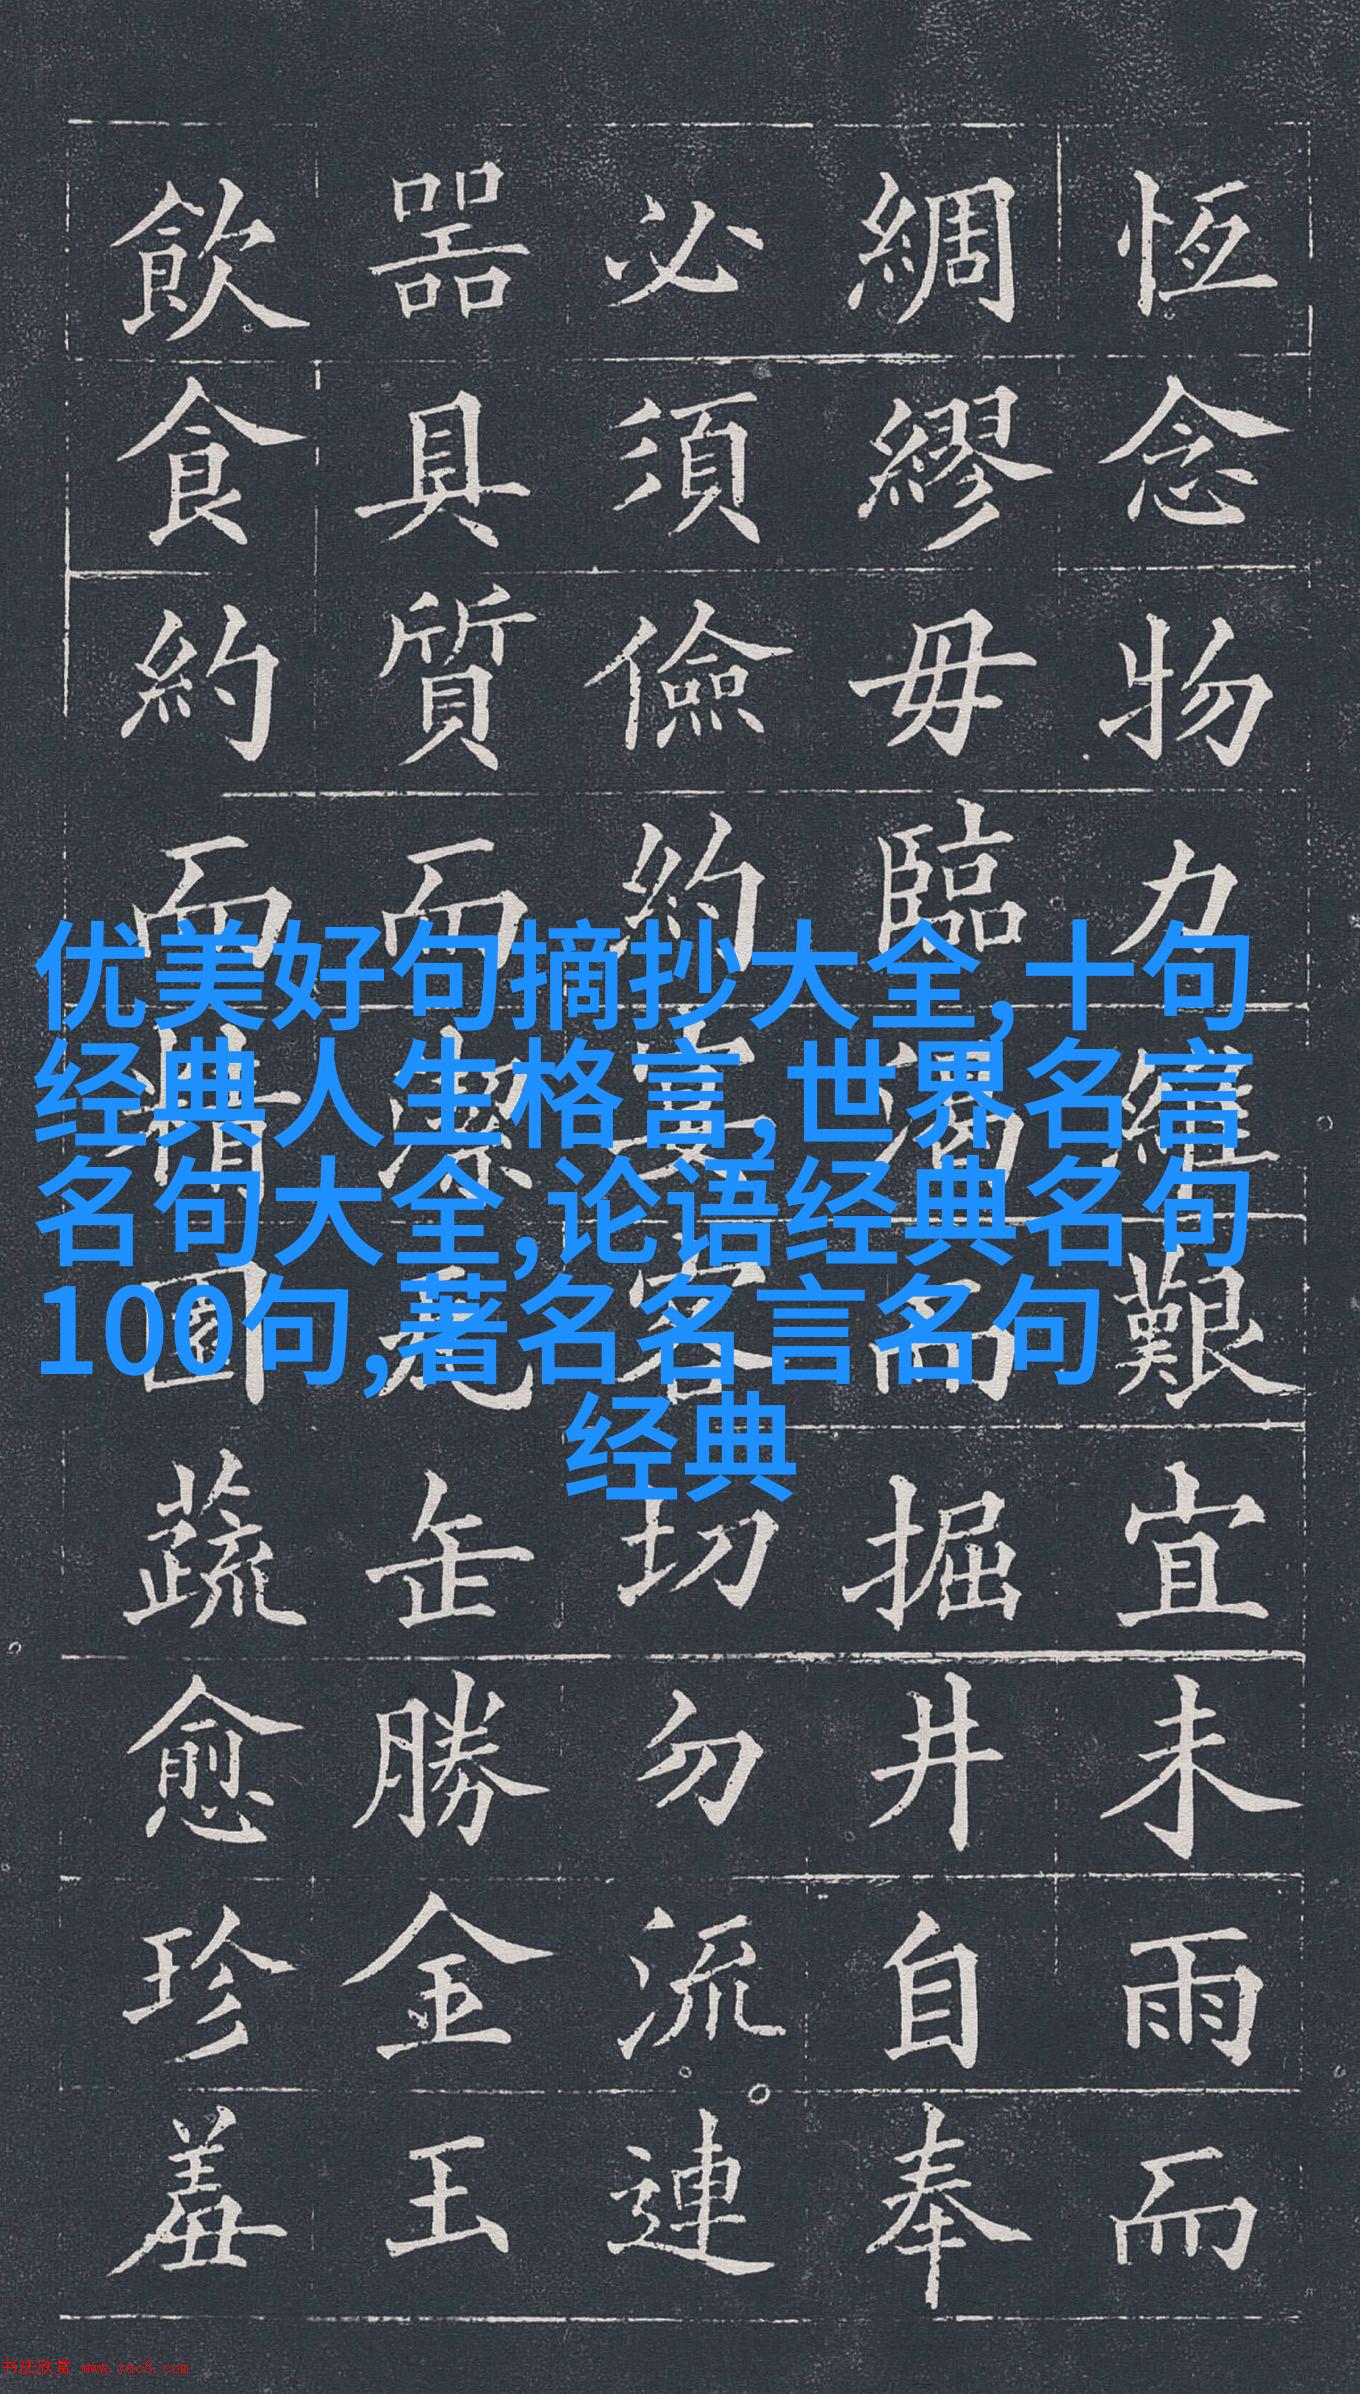 恆念物力維艱宜未雨而
綢繆毋臨渴而掘井自奉
必須儉約宴客切勿流連
器具質而潔瓦缶勝金玉
飲食約而精園蔬愈珍羞
优美好句摘抄大全,十句
经典人生格言,世界名言
名句大全,论语经典名句
100句,著名名言名句
经典
书法欣赏 www.yac8.com